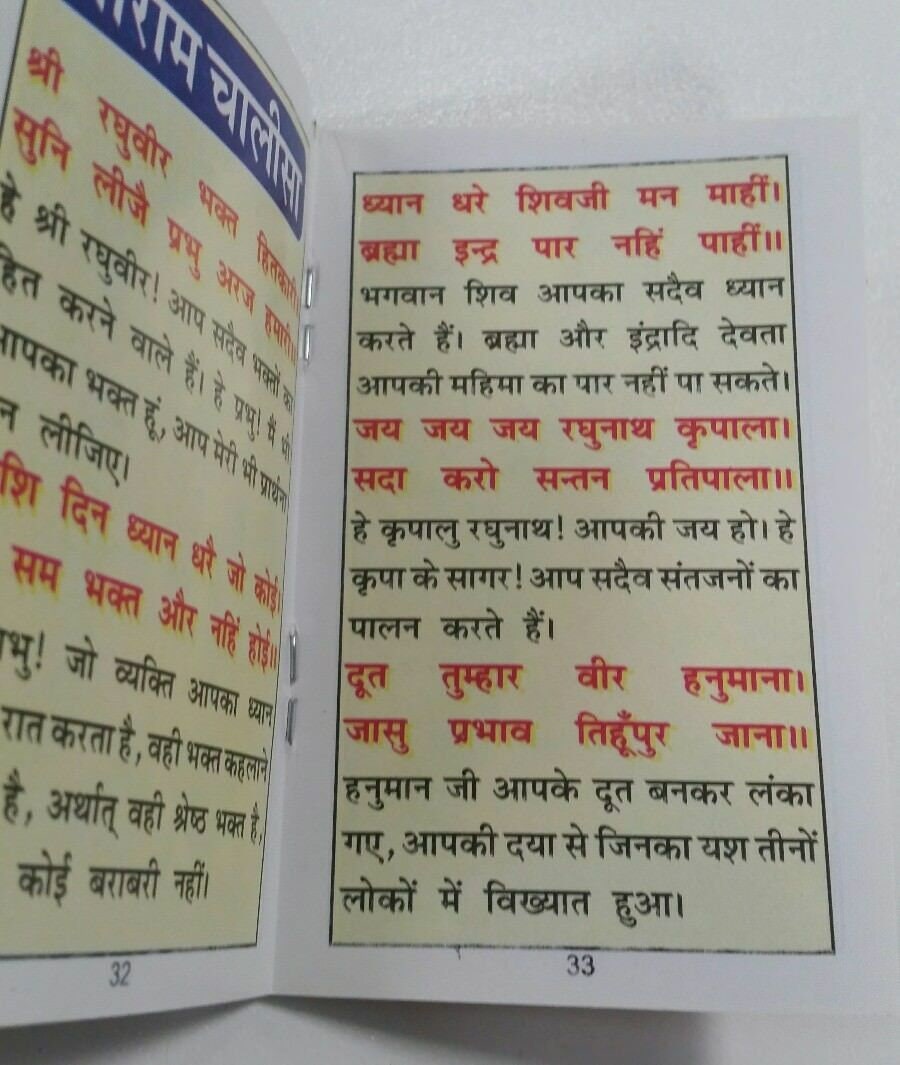 राम चालीसा
श्री रघुवीर भक्त हितकारी।
सुनि लीजै प्रभु अरज हमारी॥
हे श्री रघुवीर! आप सदैव भक्तों का
हित करने वाले हैं। हे प्रभु! मैं भी
आपका भक्त हूं, आप मेरी भी प्रार्थना
न लीजिए।
शि दिन ध्यान धरै जो कोई।
सम भक्त और नहिं होई॥
भु! जो व्यक्ति आपका ध्यान
रात करता है, वही भक्त कहलाने
है, अर्थात् वही श्रेष्ठ भक्त है,
कोई बराबरी नहीं।
32
ध्यान धरे शिवजी मन माहीं।
ब्रह्मा इन्द्र पार नहिं पाहीं॥
भगवान शिव आपका सदैव ध्यान
करते हैं। ब्रह्मा और इंद्रादि देवता
आपकी महिमा का पार नहीं पा सकते।
जय जय जय रघुनाथ कृपाला।
सदा करो सन्तन प्रतिपाला॥
हे कृपालु रघुनाथ! आपकी जय हो। हे
कृपा के सागर! आप सदैव संतजनों का
पालन करते हैं।
दूत तुम्हार वीर हनुमाना।
जासु प्रभाव तिहूँपुर जाना॥
हनुमान जी आपके दूत बनकर लंका
गए, आपकी दया से जिनका यश तीनों
लोकों में विख्यात हुआ।
33